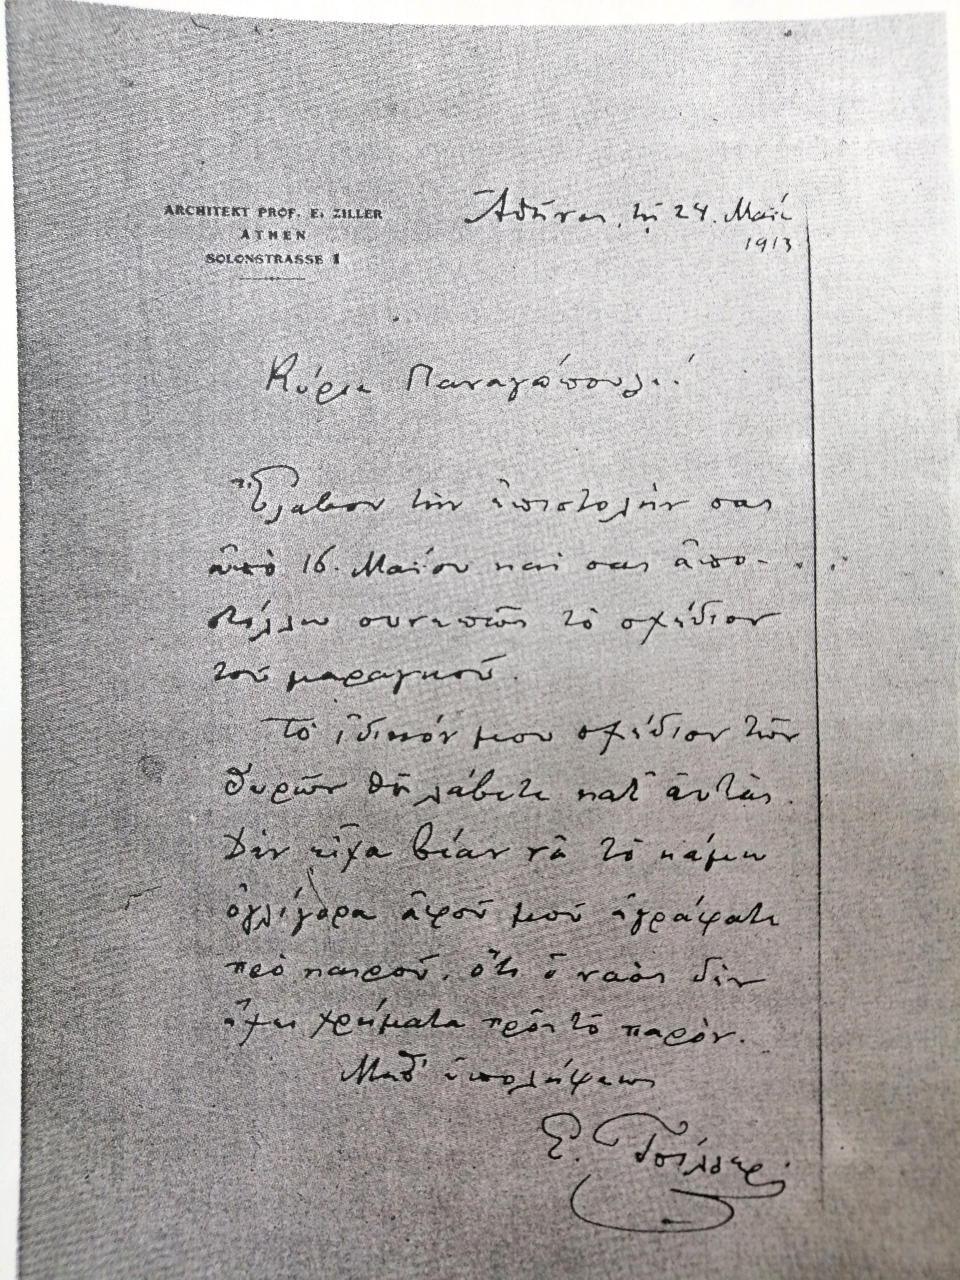 ARCHITEKT PROF. E. ZILLER
ATHEN
SOLONSTRASSE 1
Ἀθῆναι, τῇ 24. Μαΐ
1913
Κύριε Παναγόπουλε!
Ἔλαβον τὴν ἐπιστολήν σας
ἀπὸ 16. Μαΐου καὶ σας ἀπο-
στέλλω συνεπῶς τὸ σχέδιον
τοῦ μαραγκοῦ.
Τὸ ἰδικόν μου σχέδιον τῶν
θυρῶν θὰ λάβετε κατ' αὐτάς.
Δὲν εἶχα βίαν νὰ τὸ κάμω
ὀγλίγορα ἀφοῦ μοῦ ἐγράψατε
πρὸ καιροῦ, ὅτι ὁ ναὸς δὲν
ἔχει χρήματα πρὸς τὸ παρὸν.
Μεθ' ὑπολήψεως
Ε. Τσίλλερ